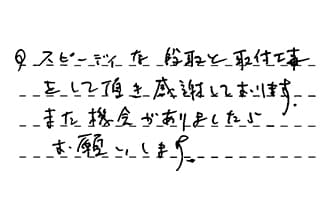 Q スピーディな段取と取付工事
をして頂き感謝しております。
また機会がありましたら
お願いします。